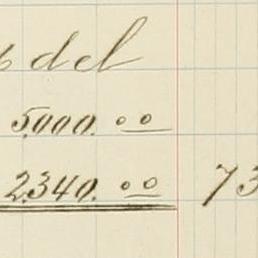 del
5,000. 00
2,340. 00 73